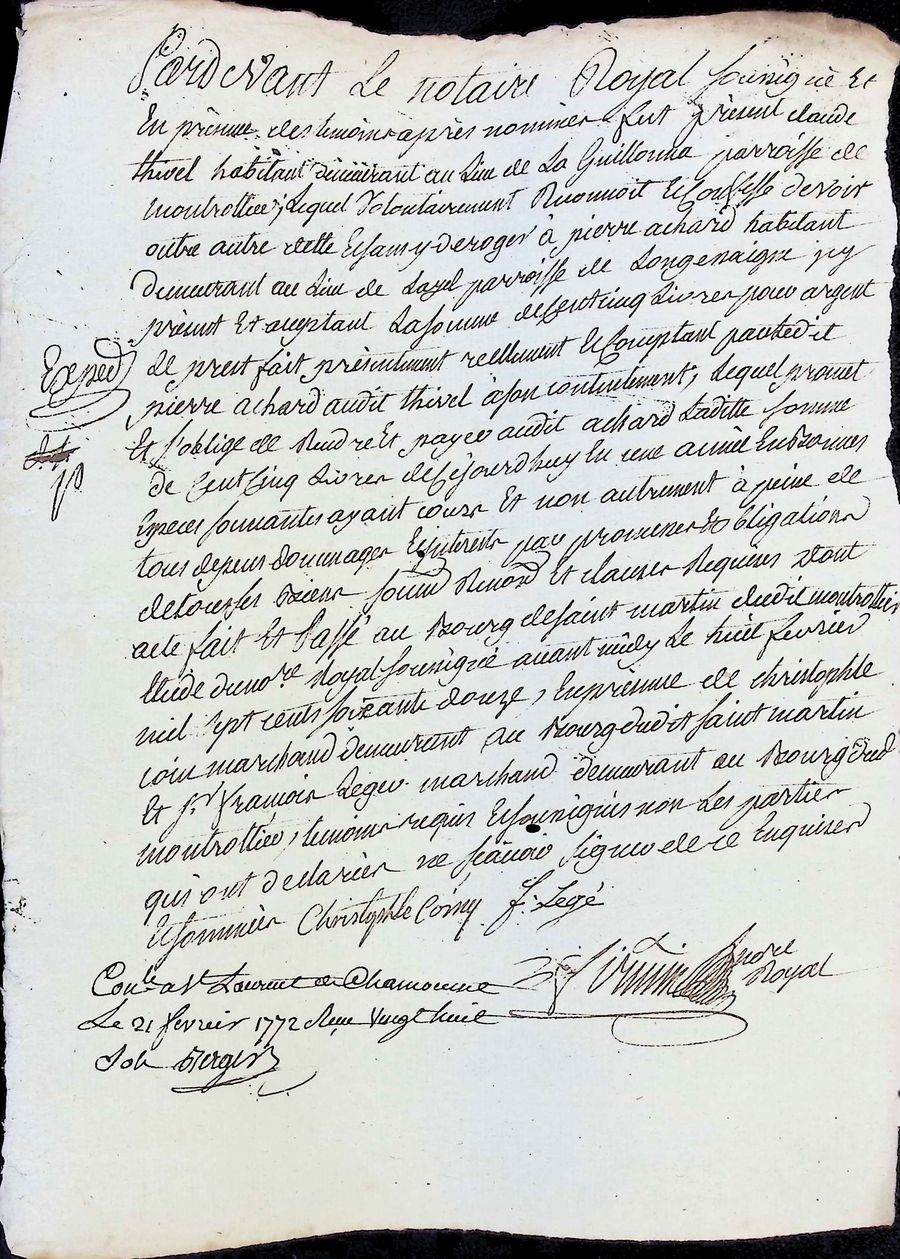 Pardevant Le notaire Royal sousigné Et
En présence des temoins après nommés fut present claude
thivel habitant demeurant au Lieu de La Guillonna parroisse de
montrottier, Lequel Volontairement Reconnoit Et Confesse devoir
outre autre dette Et sans y deroger à pierre achard habitant
demeurant au Lieu de Layel parroisse de Longessaigne icy
présent Et aceptant La somme de Cent Cinq Livres pour argent
de prest fait présentement reellement Et Comptant par led it
pierre achard audit thivel à son contentement, Lequel promet
Et s'oblige de Rendre Et payer audit achard Laditte somme
de Cent Cinq Livres de Cejourdhuy En une année En bonnes
Especes sonnantes ayant cours Et non autrement à peine de
tous depens dommages Et interets par promesses Et obligations
de tous ses biens soumis Renond et clauses Requises Dont
acte fait Et Passé au Bourg de saint martin dudit montrottier
Etude du nore Royal sousigné avant midy Le huit fevrier
mil sept cents soixante douze, En presence de christophle
coin marchand demeurant au Bourg dudit saint martin
Et sr francois Leger marchand demeurant au Bourg dud
montrottier, temoins requis Et sousignés non Les parties
qui ont declarées ne scavoir signer de ce Enquises
Et sommées Christophle Coiny f. Legé
Exped
Conlé a St Laurent de Chamousset
nore
Royal
Le 21 fevrier 1772 Reçu Vingt huit
Sols Berger